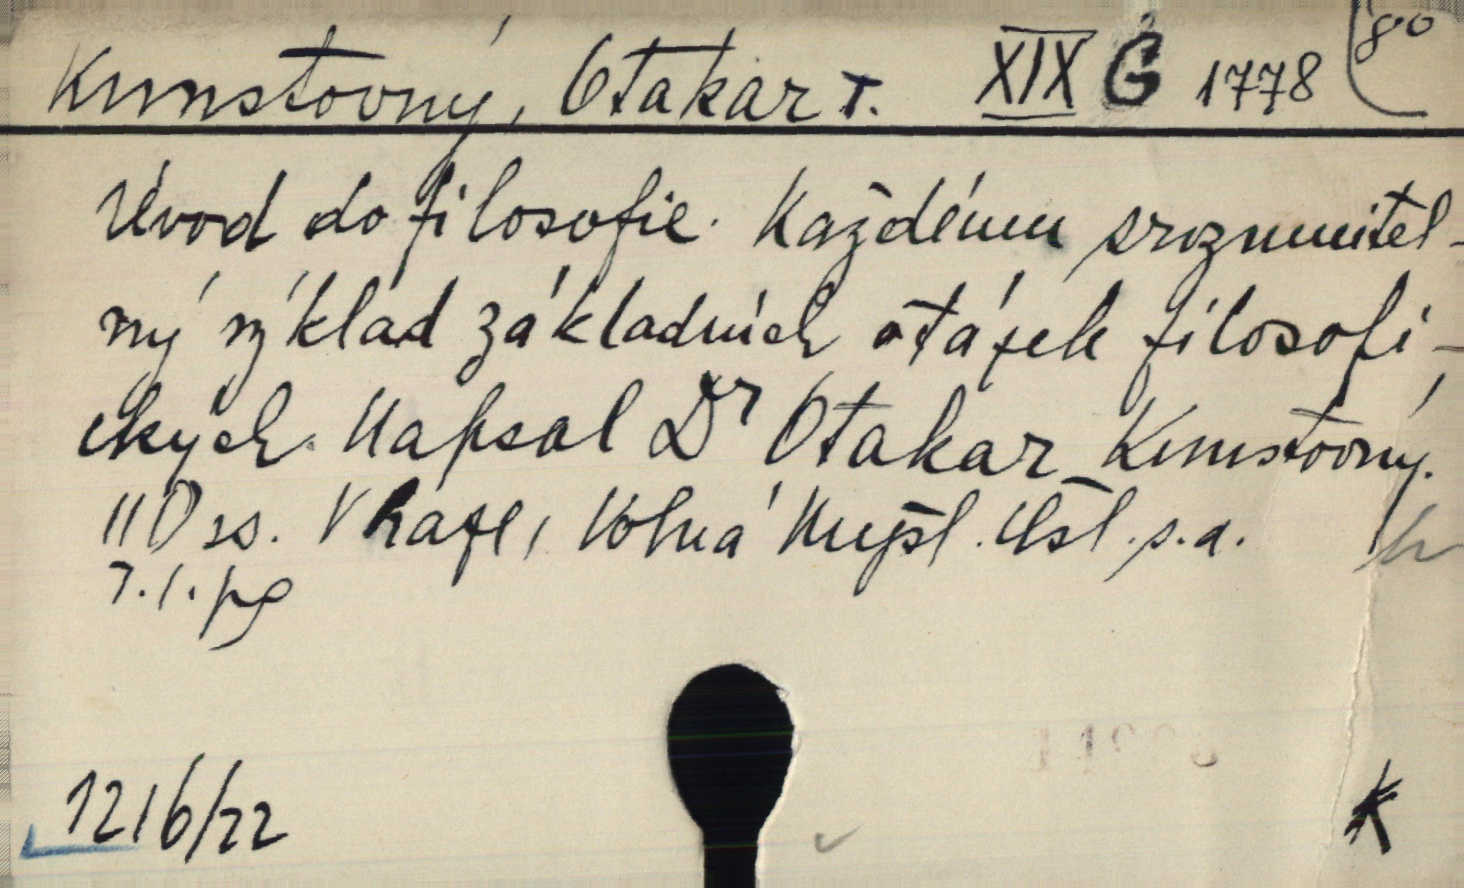 Kunstovný, Otakar T. XIX G 1778 8°
Úvod do filosofie. Každému srozumitel-
ný výklad základních otázek filosofi-
ckých. Napsal Dr Otakar Kunstovný.
110 ss. V Praze, Volná Myšl. Čsl. s.a.
7.1. pg
1216/22
K